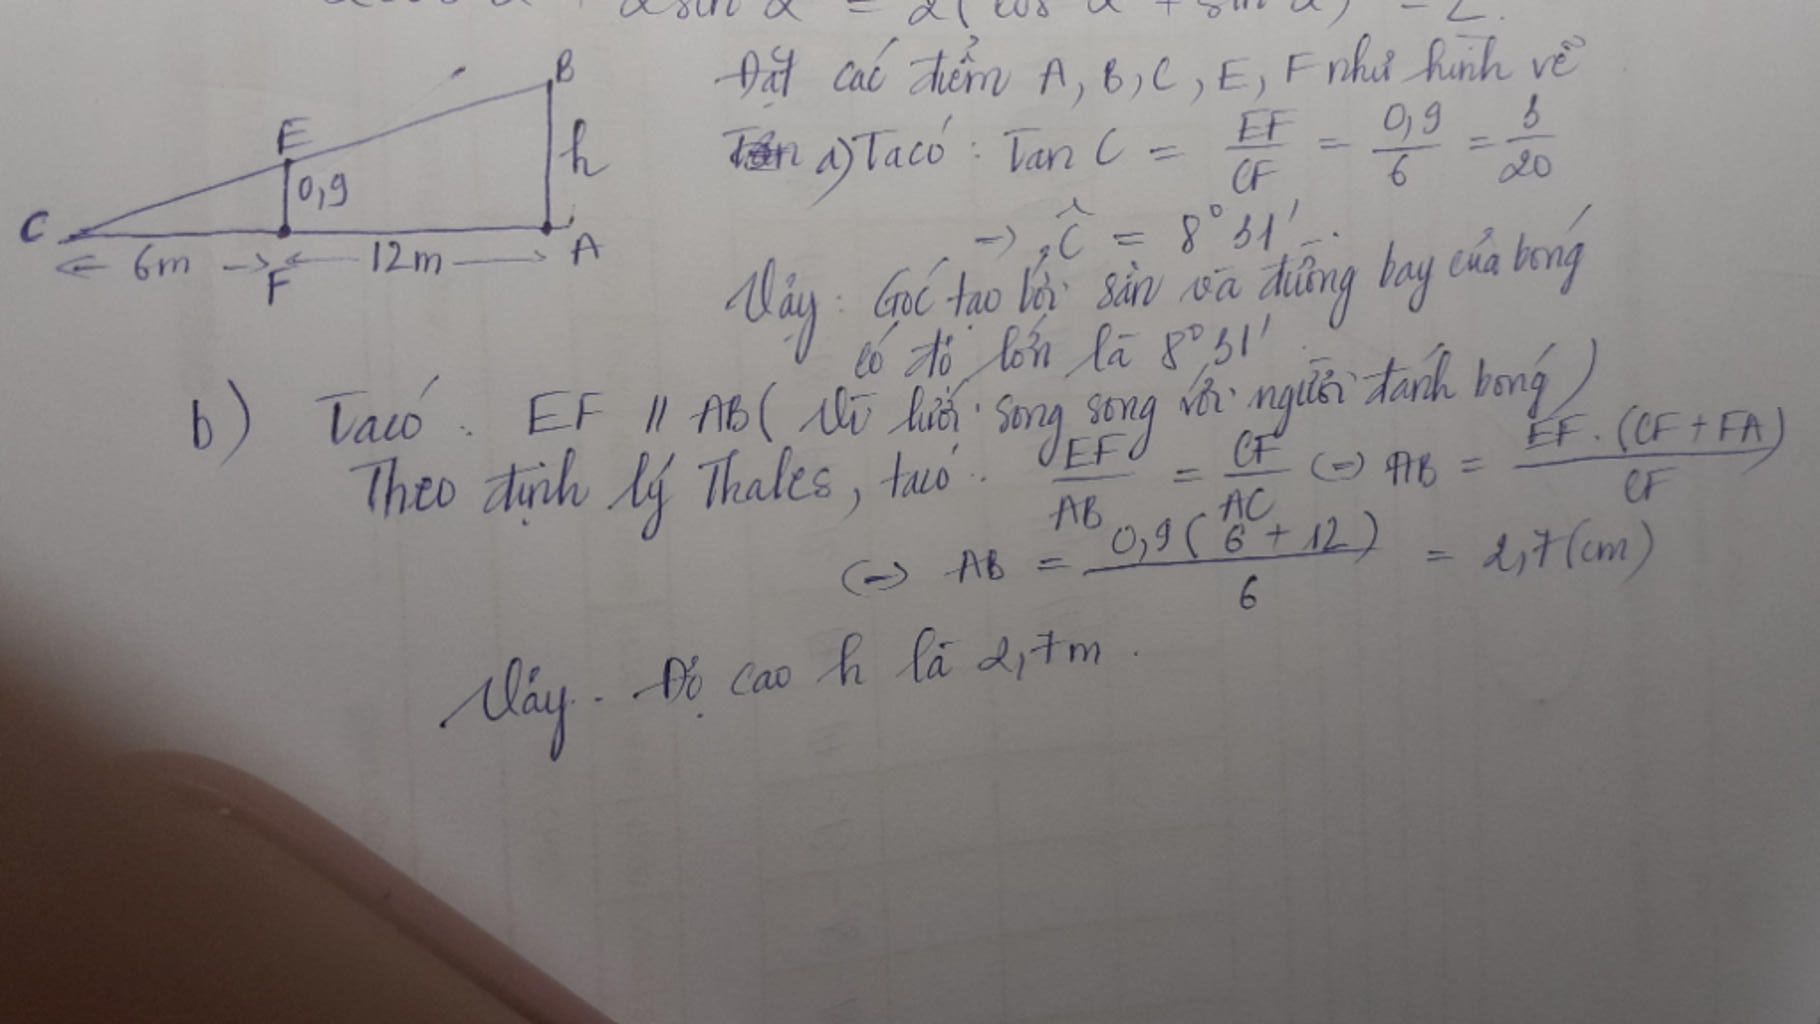 = 2(cos α + sin α) = 2.
B
E
h
0,9
C
6m
12m
A
F
Đặt các điểm A, B, C, E, F như hình vẽ
a) Ta có: Tan C = EF/CF = 0,9/6 = 3/20
=> Ĉ = 8°31'.
Vậy: Góc tạo bởi sân và đường bay của bóng
có độ lớn là 8°31'
b) Ta có: EF // AB (Vì lưới song song với người đánh bóng)
Theo định lý Thales, ta có: EF/AB = CF/AC <=> AB = EF.(CF+FA)/CF
<=> AB = 0,9(6+12)/6 = 2,7(cm)
Vậy: Độ cao h là 2,7m.